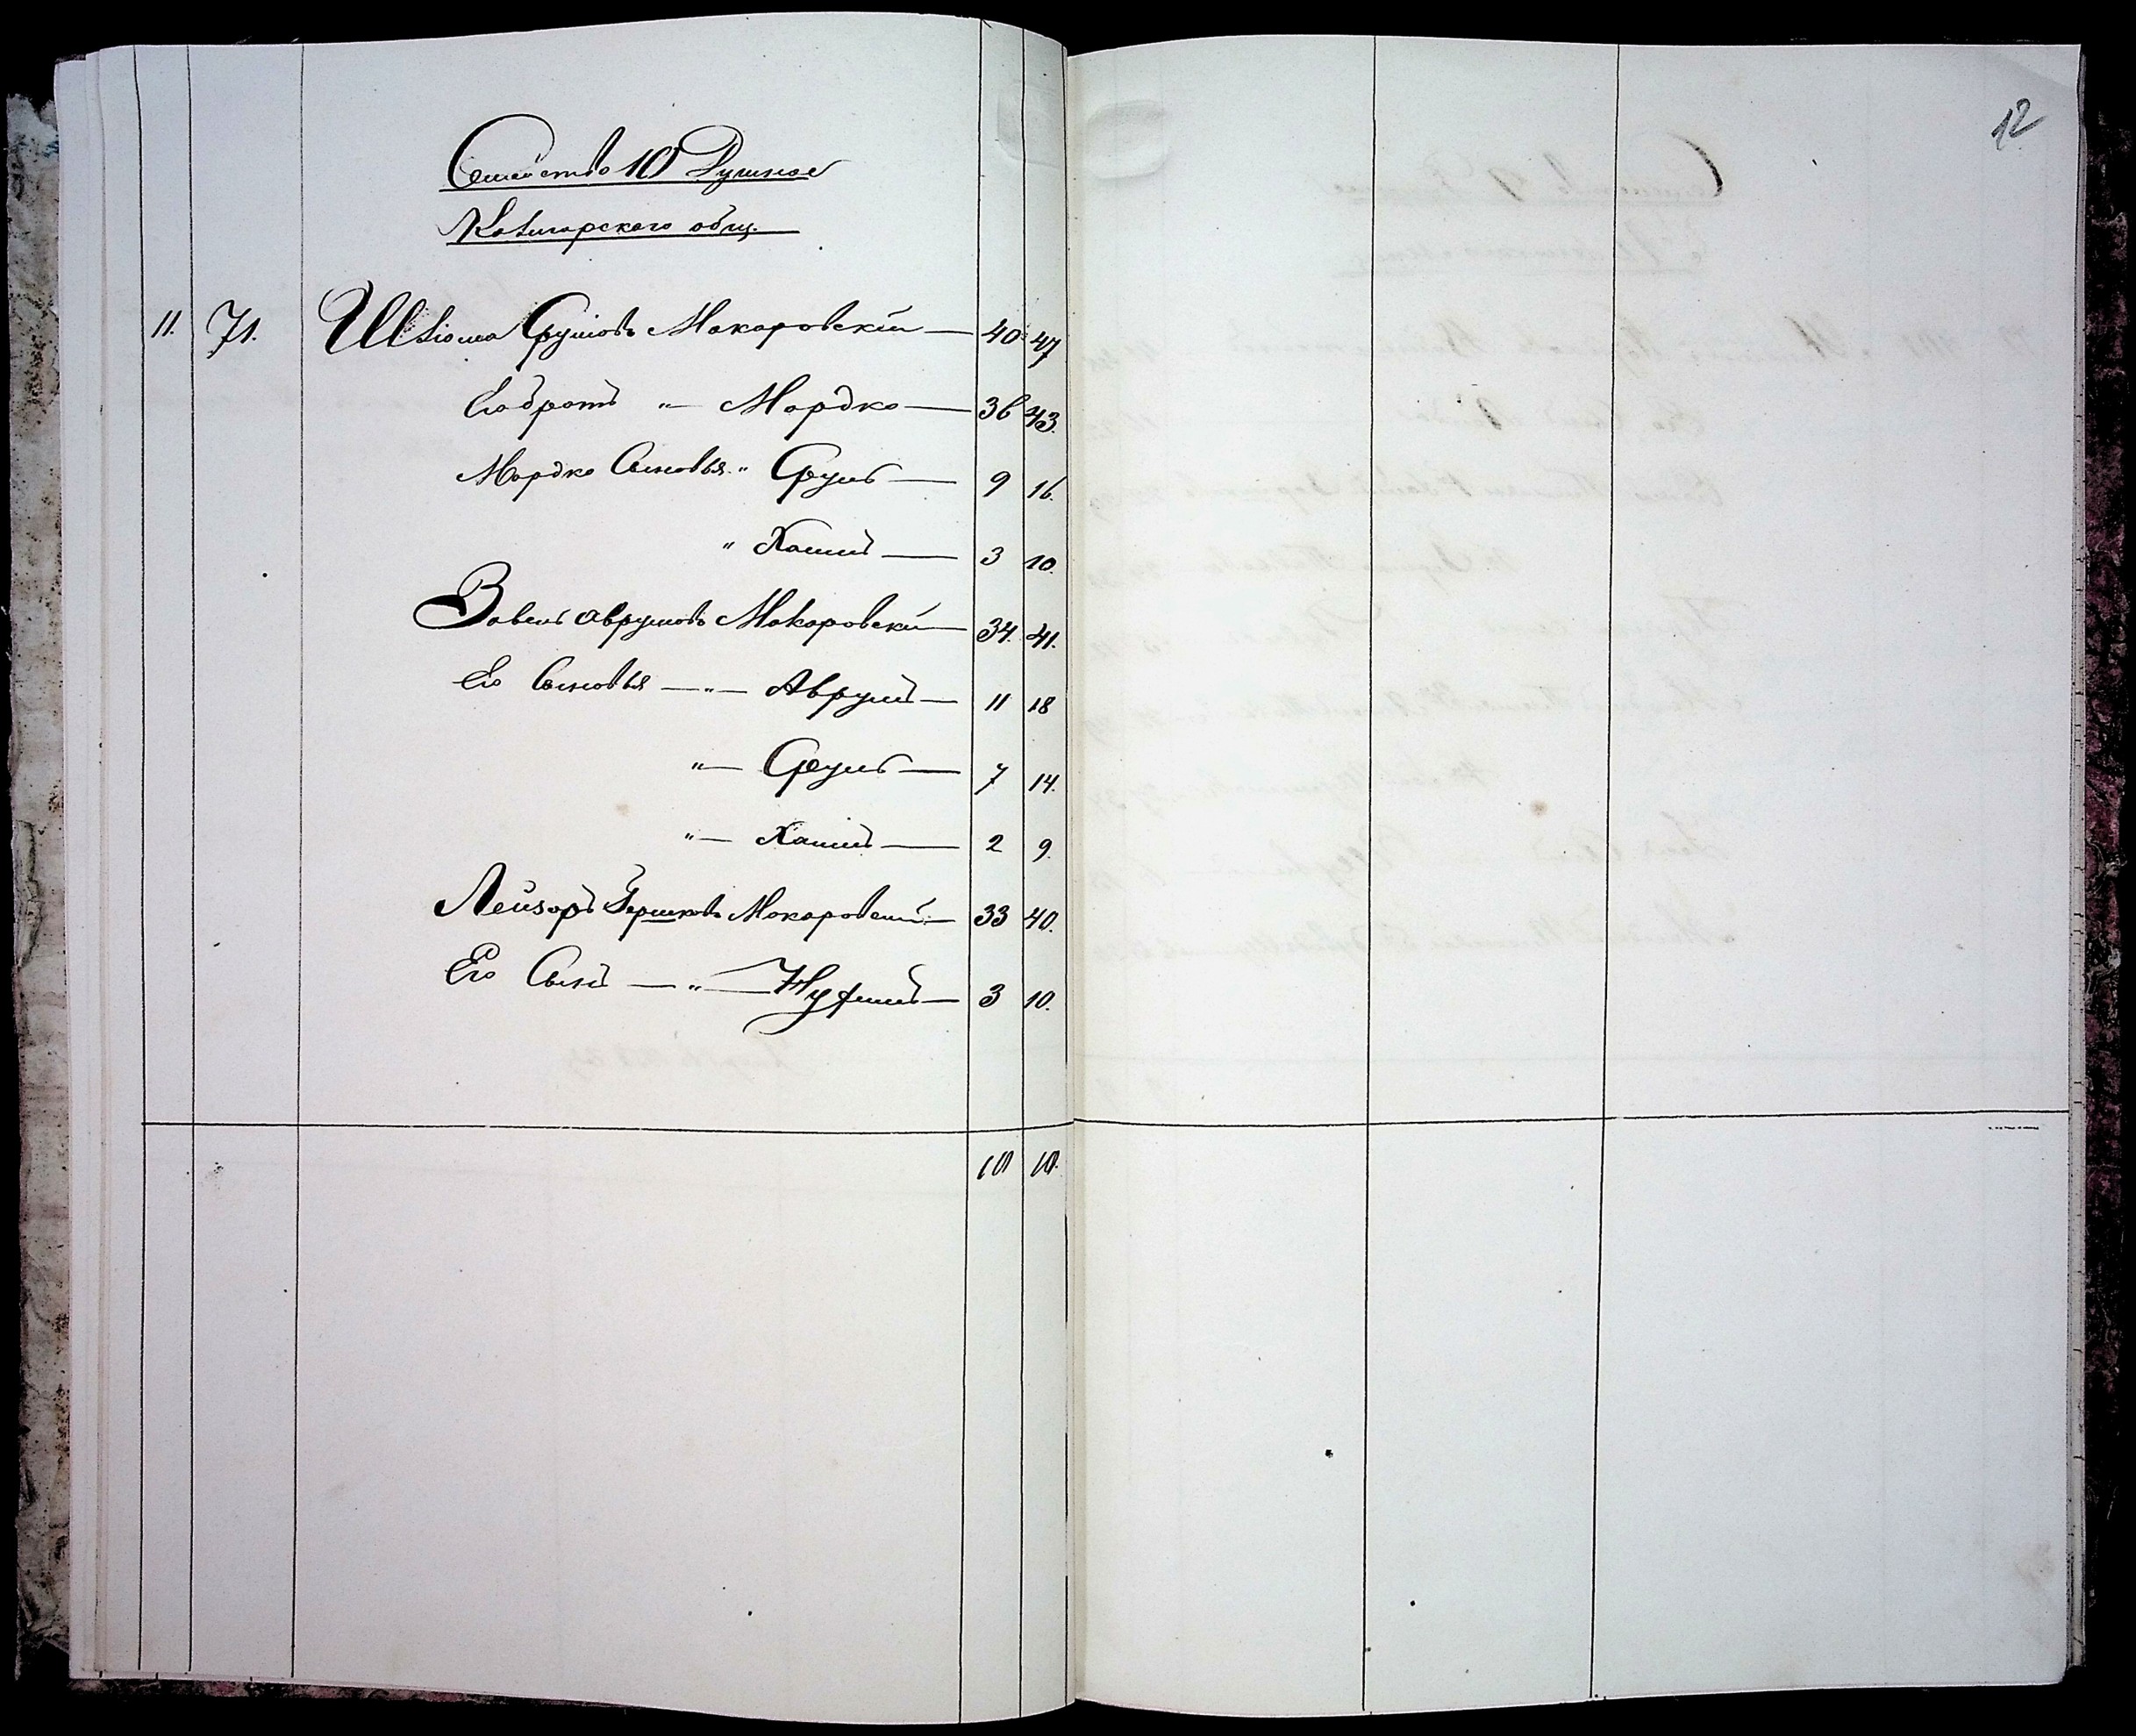 12
Семейство 10 Душное
Кагарлыкского общ.
11. 71. Шліома Срулiовъ Макаровскій — 40 47
Его братъ „ — Мордко — 36 43.
Мордко Сыновья „ Сруль — 9 16.
„ Хаимъ — 3 10.
Завель Аврумовъ Макаровскій — 34. 41.
Его Сыновья — „ — Аврумъ — 11 18
„ — Сруль — 7 14.
„ — Хаимъ — 2 9.
Лейзоръ Гершковъ Макаровскій — 33 40.
Его Сынъ — „ — Нухимъ — 3 10.
10 10.